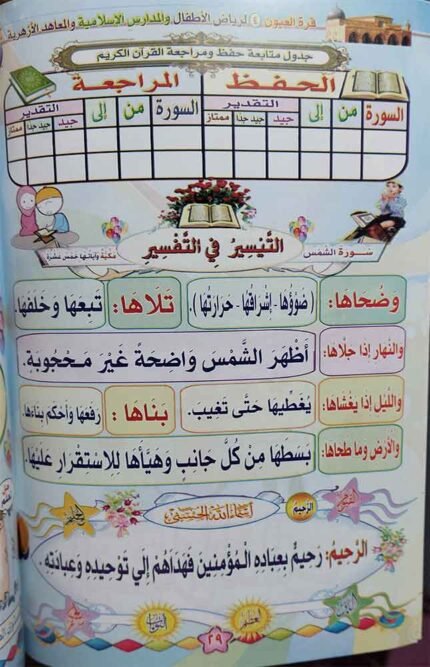 قرة العيون ٤ لرياض الأطفال والمدارس الإسلامية والمعاهد الأزهرية
جدول متابعة حفظ ومراجعة القرآن الكريم
الحفظ المراجعة
السورة من إلى التقدير السورة من إلى التقدير
جيد جيد جدا ممتاز جيد جيد جدا ممتاز
التَّيْسِيرُ فِي التَّفْسِيرِ
سُورَةُ الشَّمْسِ
مَكِّيَّةٌ وَآيَاتُهَا خَمْسَ عَشْرَةَ
وَضُحَاهَا: (ضَوْؤُهَا - إِشْرَاقُهَا - حَرَارَتُهَا). تَلَاهَا: تَبِعَهَا وَخَلَفَهَا.
وَالنَّهَارِ إِذَا جَلَّاهَا: أَظْهَرَ الشَّمْسَ وَاضِحَةً غَيْرَ مَحْجُوبَةٍ.
وَاللَّيْلِ إِذَا يَغْشَاهَا: يُغَطِّيهَا حَتَّى تَغِيبَ. بَنَاهَا: رَفَعَهَا وَأَحْكَمَ بِنَاءَهَا.
وَالْأَرْضِ وَمَا طَحَاهَا: بَسَطَهَا مِنْ كُلِّ جَانِبٍ وَهَيَّأَهَا لِلِاسْتِقْرَارِ عَلَيْهَا.
أسماء الله الحسنى
الرَّحِيمُ
الرَّحِيمُ: رَحِيمٌ بِعِبَادِهِ الْمُؤْمِنِينَ فَهَدَاهُمْ إِلَي تَوْحِيدِهِ وَعِبَادَتِهِ.
٢٩